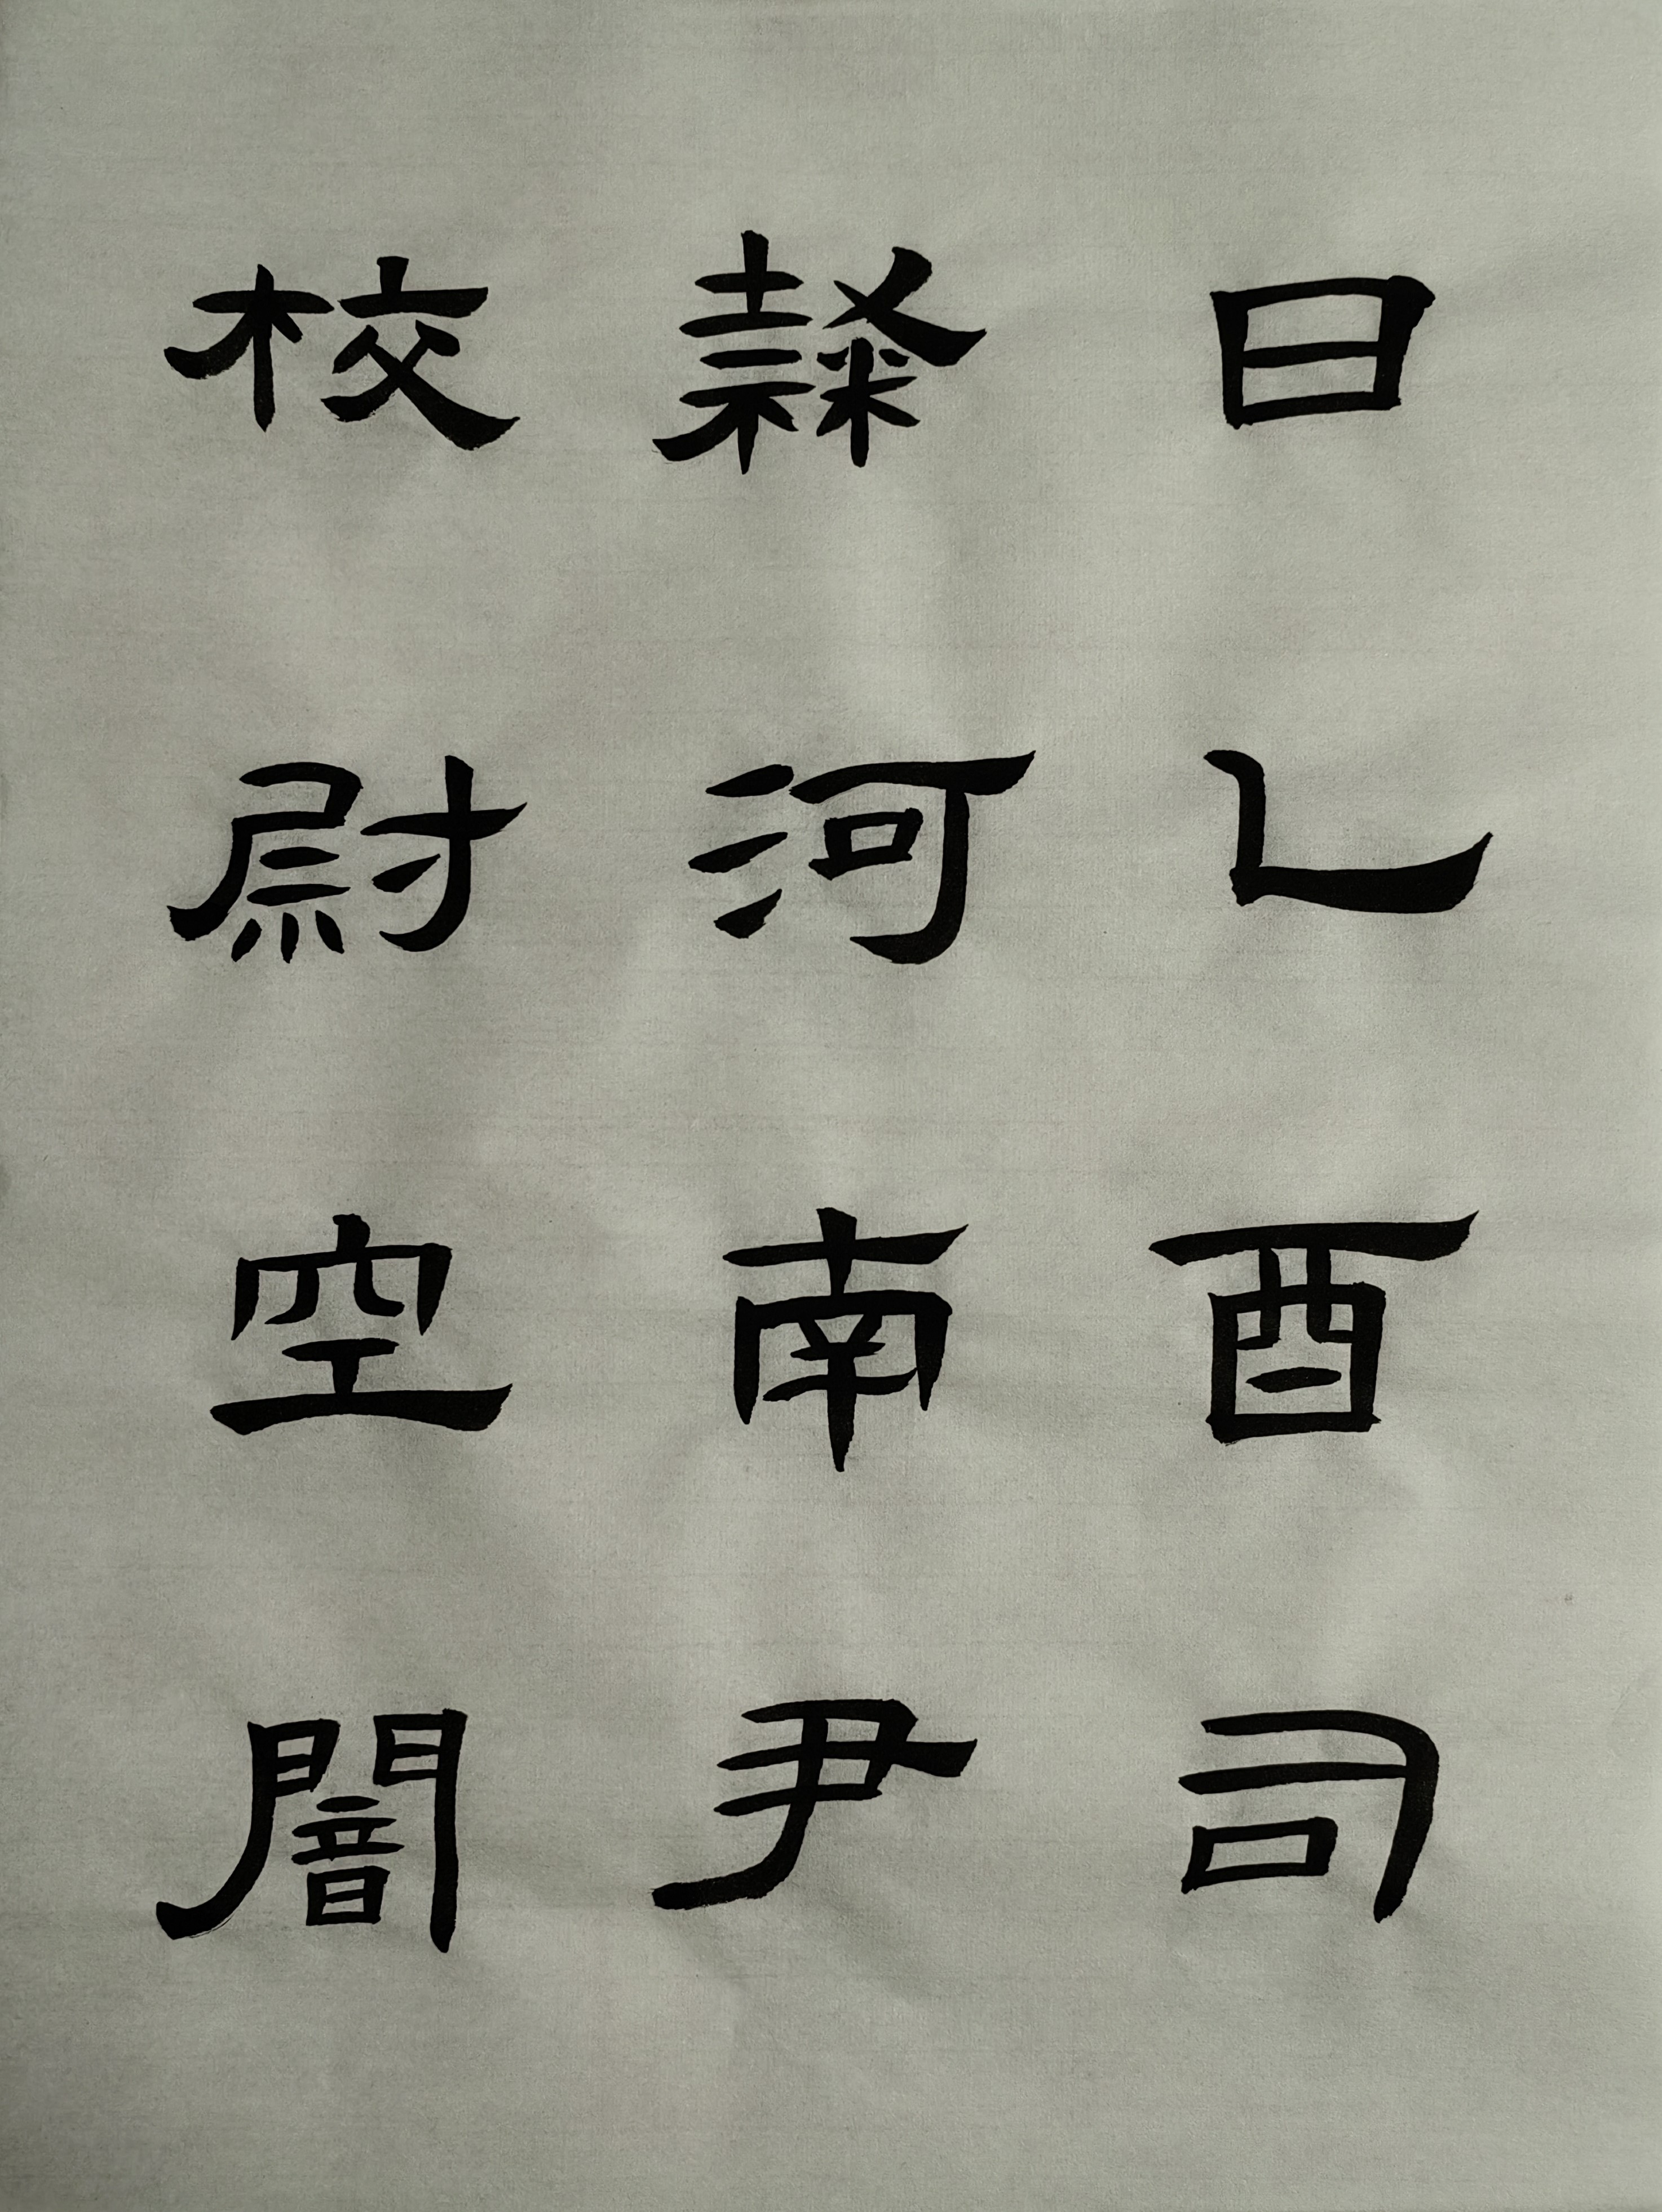 日乚酉司
隸河南尹
校尉空闇